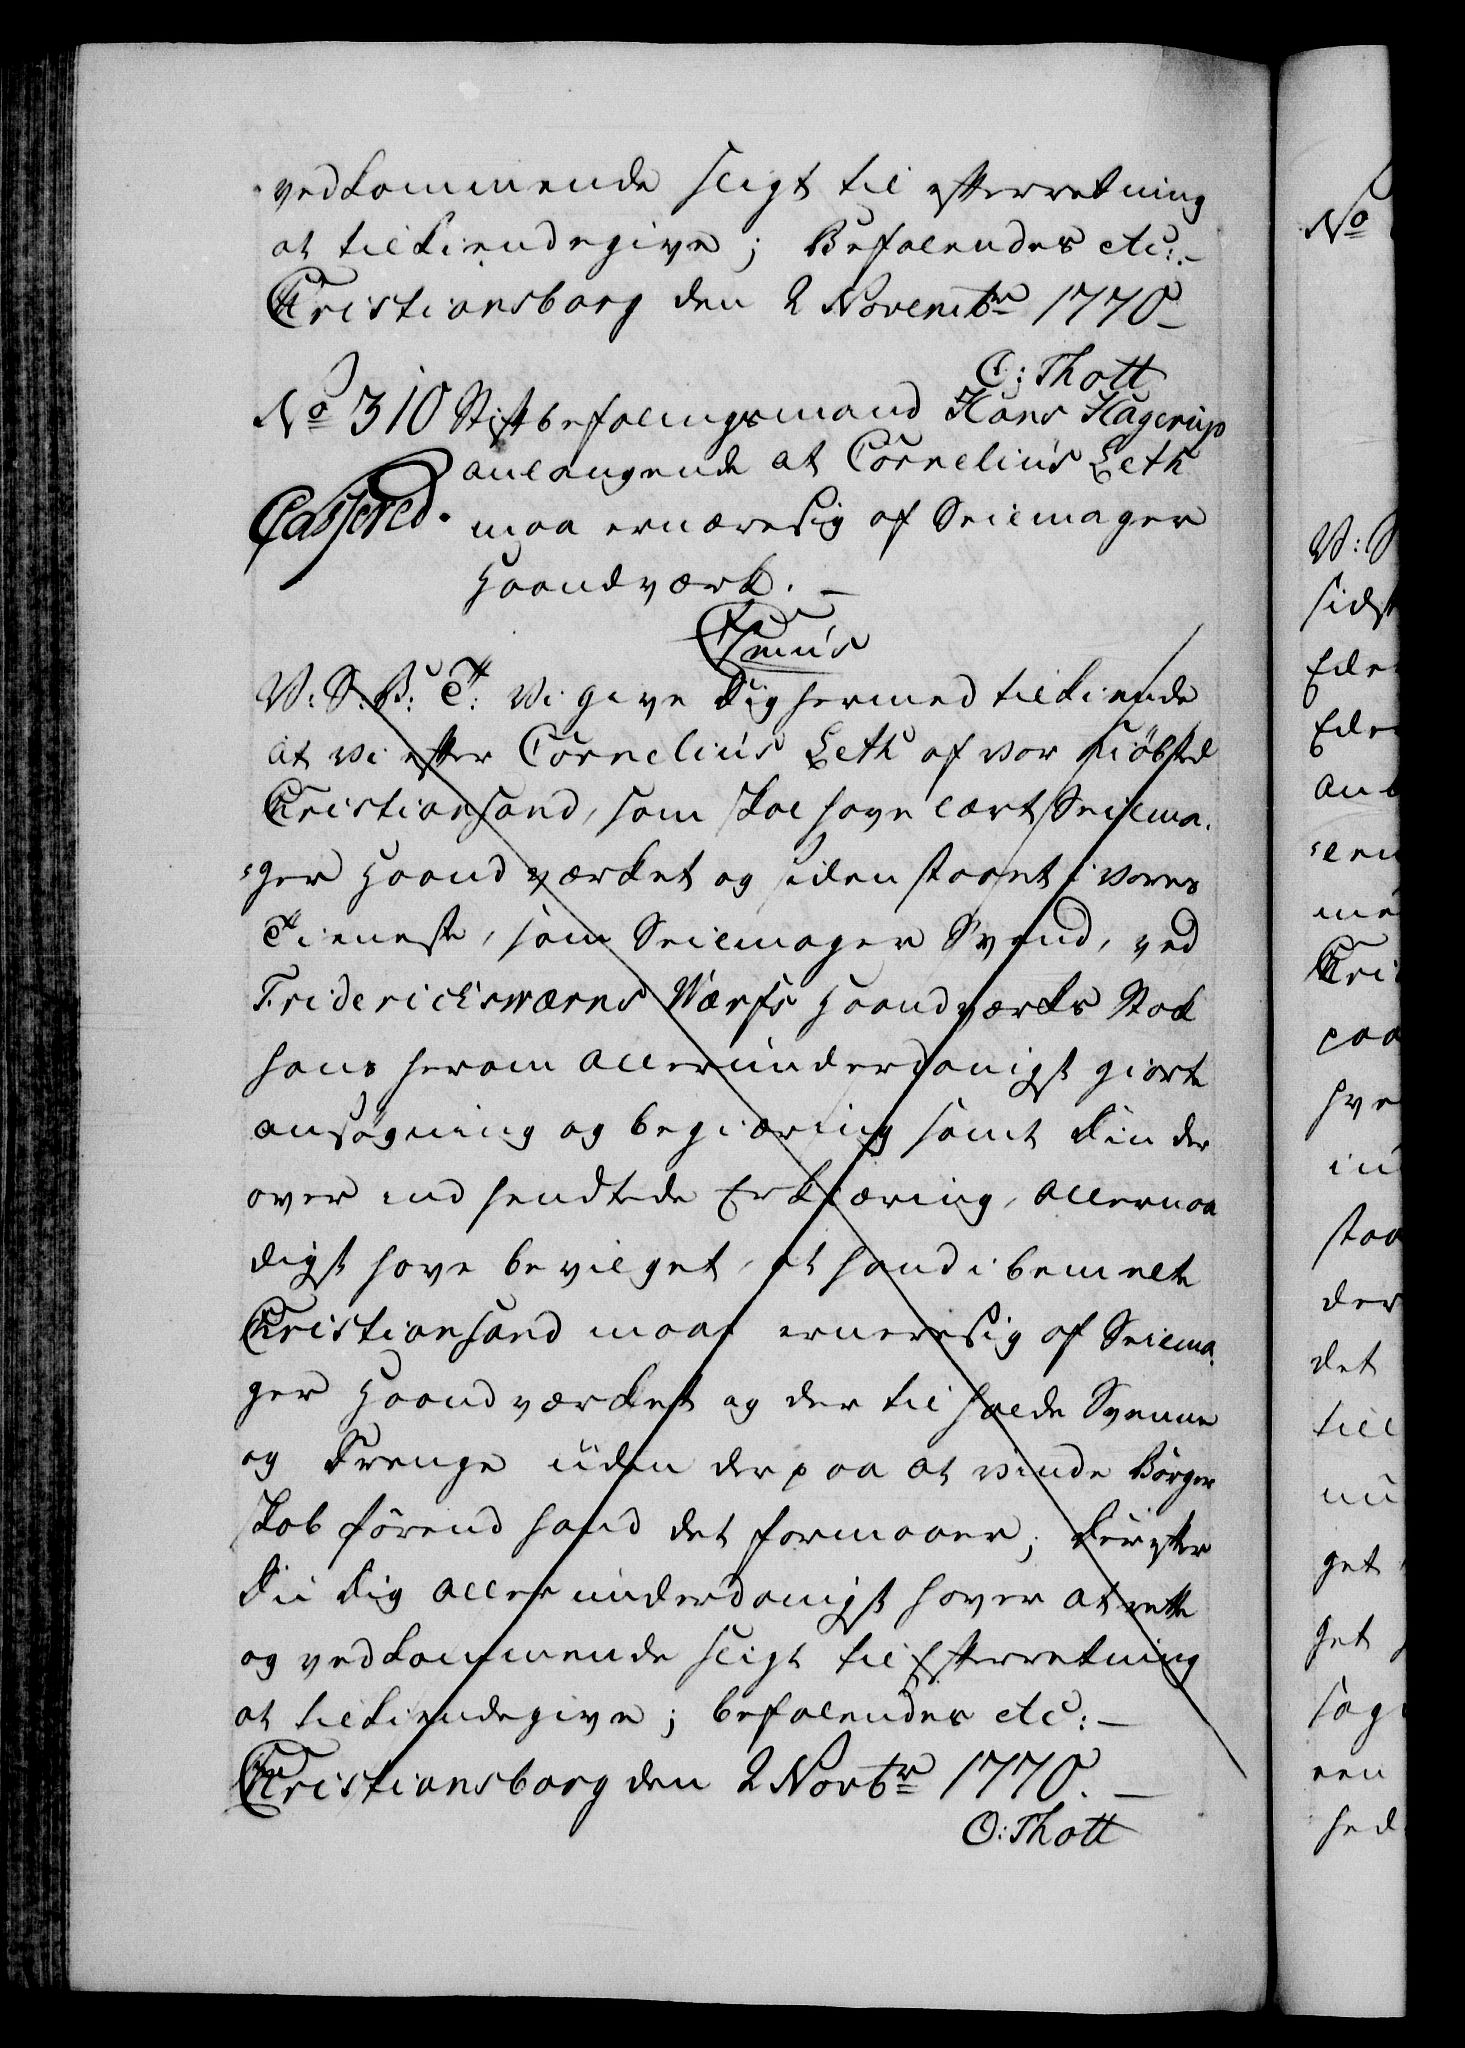 vedkommende sligt til efterretning
at tilkiendegive; Befalendes etc:-
Christiansborg den 2 Novembr 1770-
O: Thott
No 310 Stiftbefalingsmand Hans Hagerup
anlangende at Cornelius Leth
Cassered. maa ernære sig af Seilmager
Haandværk. -
V: S. B: T: Vi give Dig hermed tilkiende
at vi efter Cornelius Leth af vor Kiöbsted
Christiansand, som skal have lært Seilma-
-ger Haandværket og siden staaet i vores
Tieneste, som Seilmager Svend, ved
Friderichsværns Værfs Haandværks Stok
hans herom allerunderdanigst giorte
ansøgning og begiæring samt Din der
over indsendtede Erklæring, allernaa
digst have bevilget, at hand i bemelte
Christiansand maa ernere sig af Seilma-
ger Haandværket og der til holde Svenne
og Drenge uden derpaa at vinde Börger
skab förend hand det formaaer; Derefter
Du Dig allerunderdanigst haver at rette
og vedkommende sligt til Efterretning
at tilkiendegive; befalendes etc: -
Christiansborg den 2 Novbr 1770. -
O: Thott
No
V: S
sidst
Eder
Eder
det
till
get